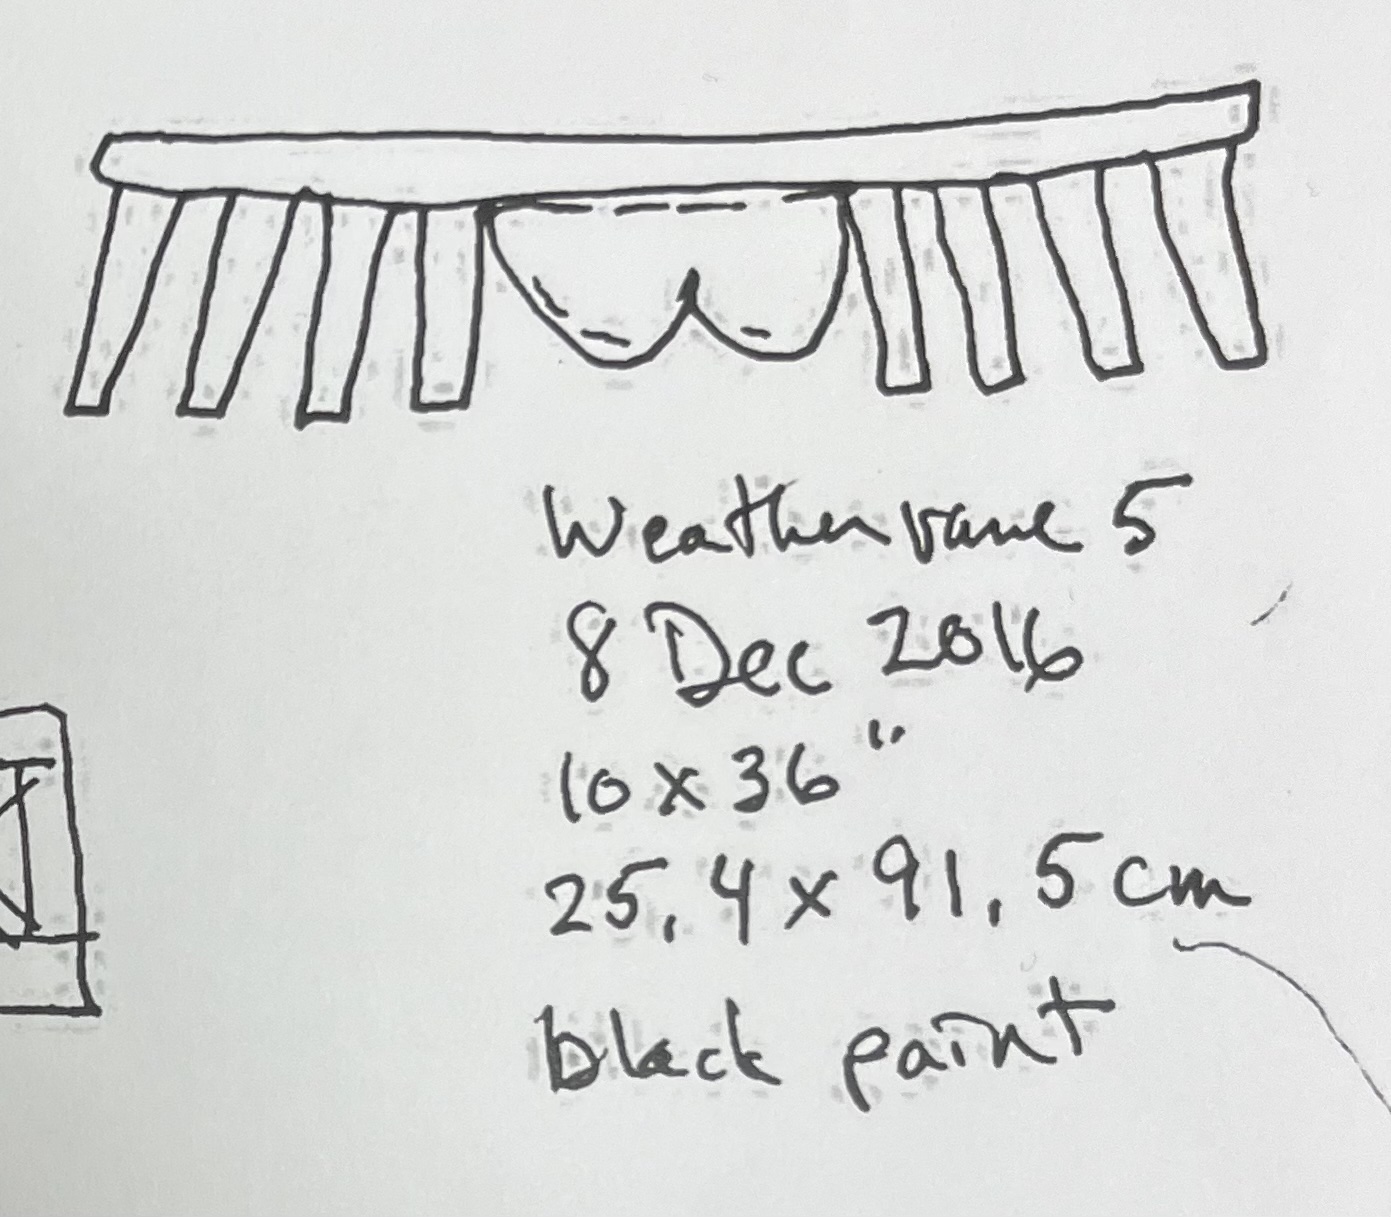 Weathervane 5
8 Dec 2016
10 x 36"
25.4 x 91.5 cm
black paint